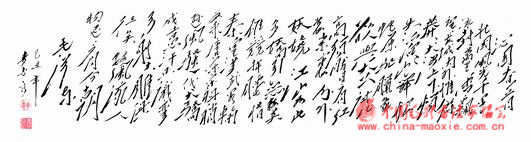 沁园春 雪
北国风光千里
冰封万里雪飘
望长城内外惟余
莽莽大河上下顿
失滔滔山舞银蛇
原驰蜡象
欲与天公试比
高须晴日看红
装素裹分外
妖娆江山如此
多娇引无数英
雄竞折腰惜
秦皇汉武略输文
采唐宗宋祖稍
逊风骚一代天骄
成吉思汗只识弯
弓射大雕俱
往矣数风流人
物还看今朝
毛泽东
己丑年
www.china-maoxie.com